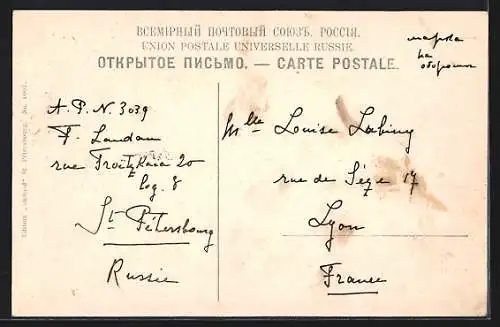 ВСЕМІРНЫЙ ПОЧТОВЫЙ СОЮЗЪ. РОССІЯ.
UNION POSTALE UNIVERSELLE RUSSIE.
ОТКРЫТОЕ ПИСЬМО. — CARTE POSTALE.
марка
на
обороте
A. P. N. 3039
F. Landau
rue Troitzkaia 20
log. 8
St Pétersbourg
Russie
Mlle Louise Labing
rue de Sèze 17
Lyon
France